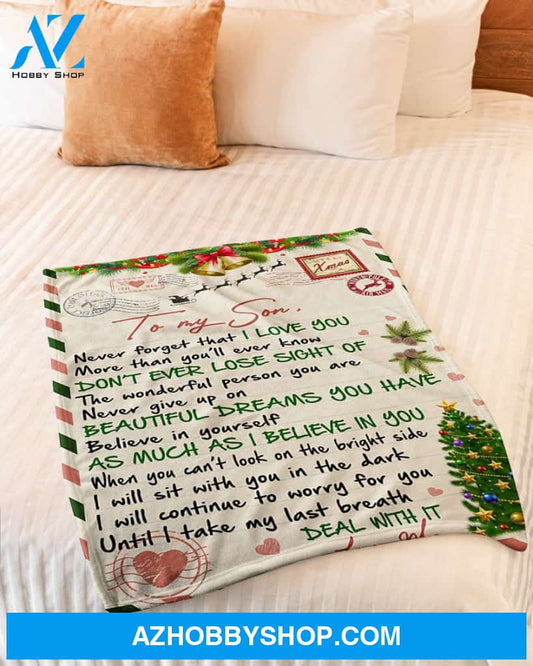 AZ
HOBBY SHOP
Xmas
To my Son,
Never forget that I LOVE YOU
More than you'll ever know
DON'T EVER LOSE SIGHT OF
The wonderful person you are
Never give up on
BEAUTIFUL DREAMS YOU HAVE
Believe in yourself
AS MUCH AS I BELIEVE IN YOU
When you can't look on the bright side
I will sit with you in the dark
I will continue to worry for you
Until I take my last breath
DEAL WITH IT
AZHOBBYSHOP.COM